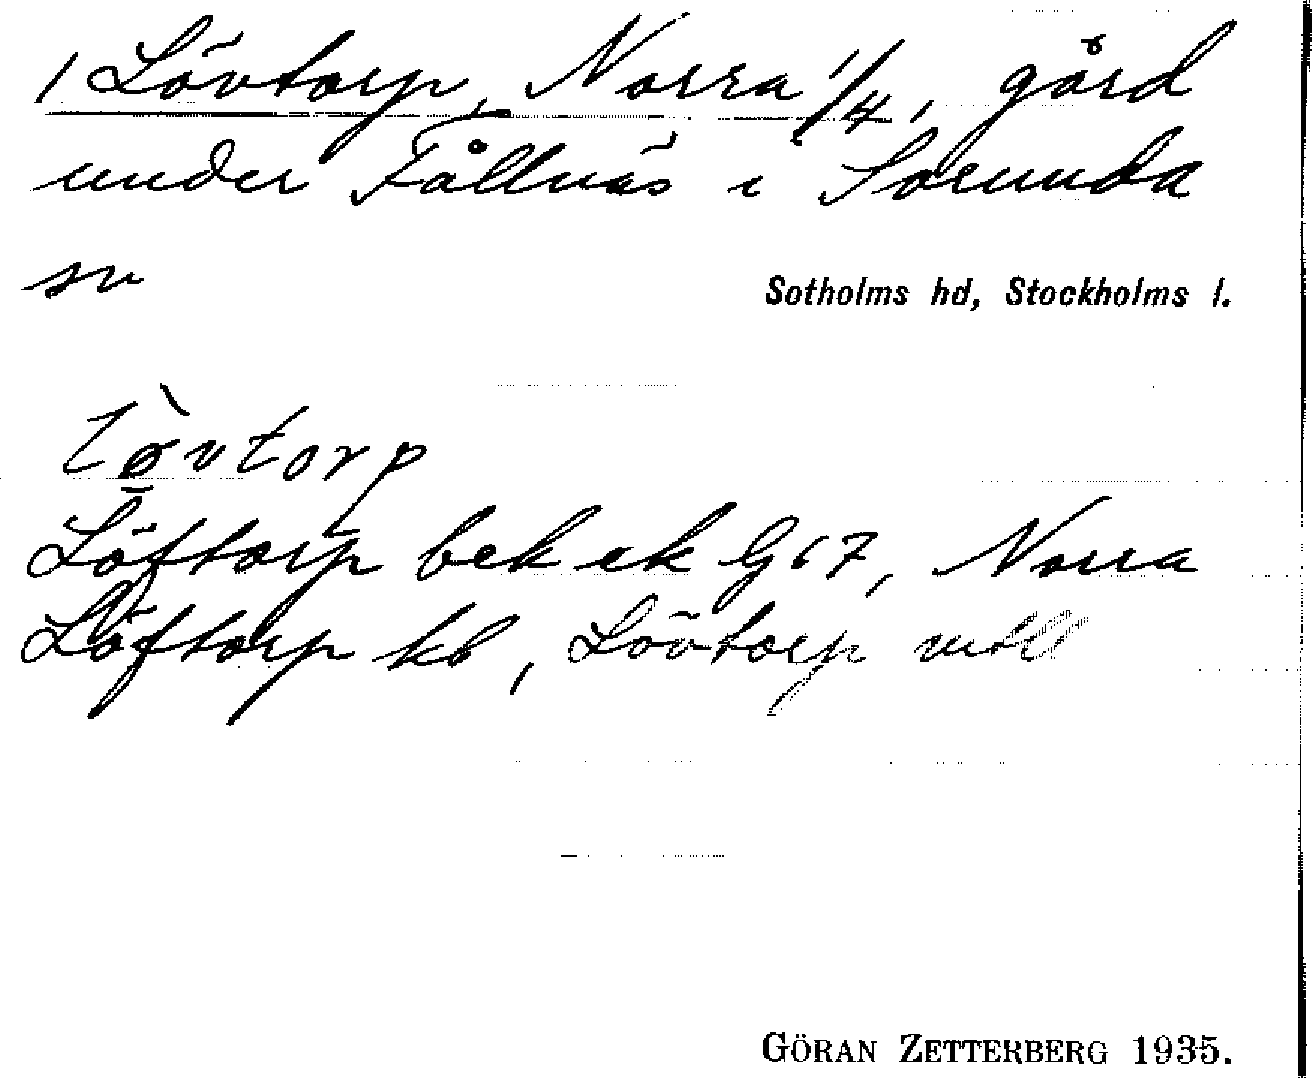 1 Lövtorp, Norra 1/4, gård
under Fållnäs i Sorunda
sn
Sotholms hd, Stockholms l.
Löftorp bek ek G 67, Norra
Löftorp kb, Lövtorp
GÖRAN ZETTERBERG 1935.